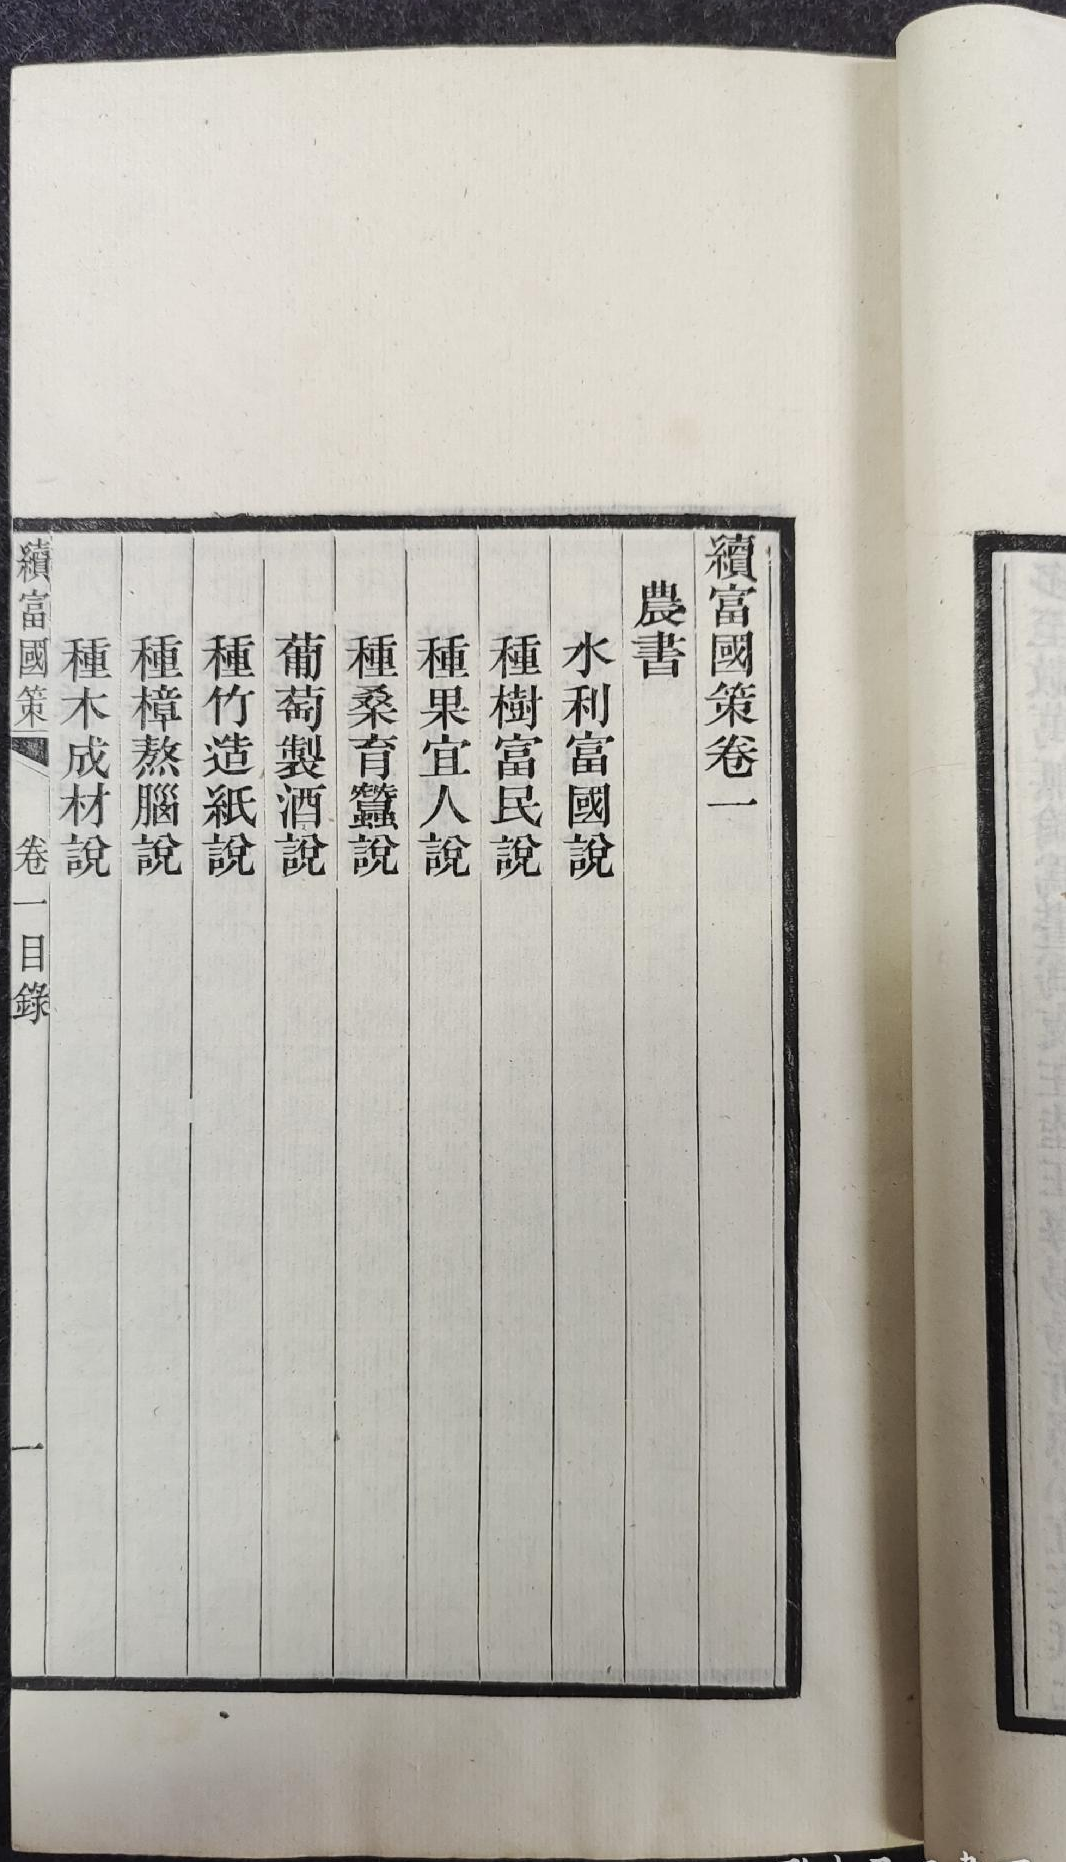 續富國策卷一
農書
水利富國說
種樹富民說
種果宜人說
種桑育蠶說
葡萄製酒說
種竹造紙說
種樟熬腦說
種木成材說
續富國策 卷一目錄 一